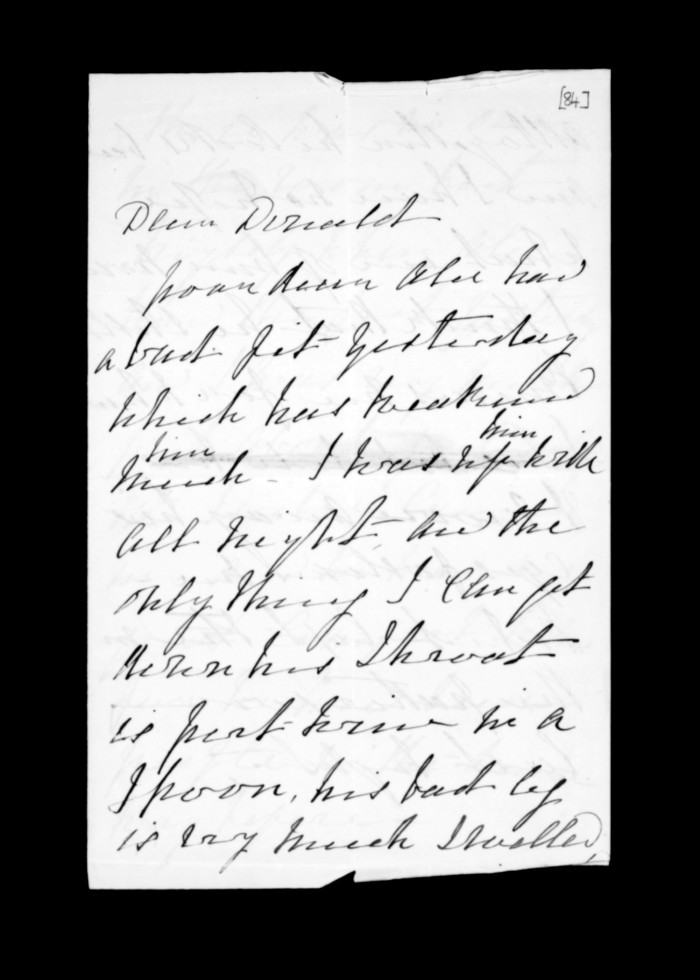 [84]
Dear Donald
poor dear Alec had
a bad fit yesterday
which has weakened
him him
much - I was up with
all night, and the
only thing I can get
down his Throat
is port wine in a
Spoon, his bad leg
is very much Swelled,